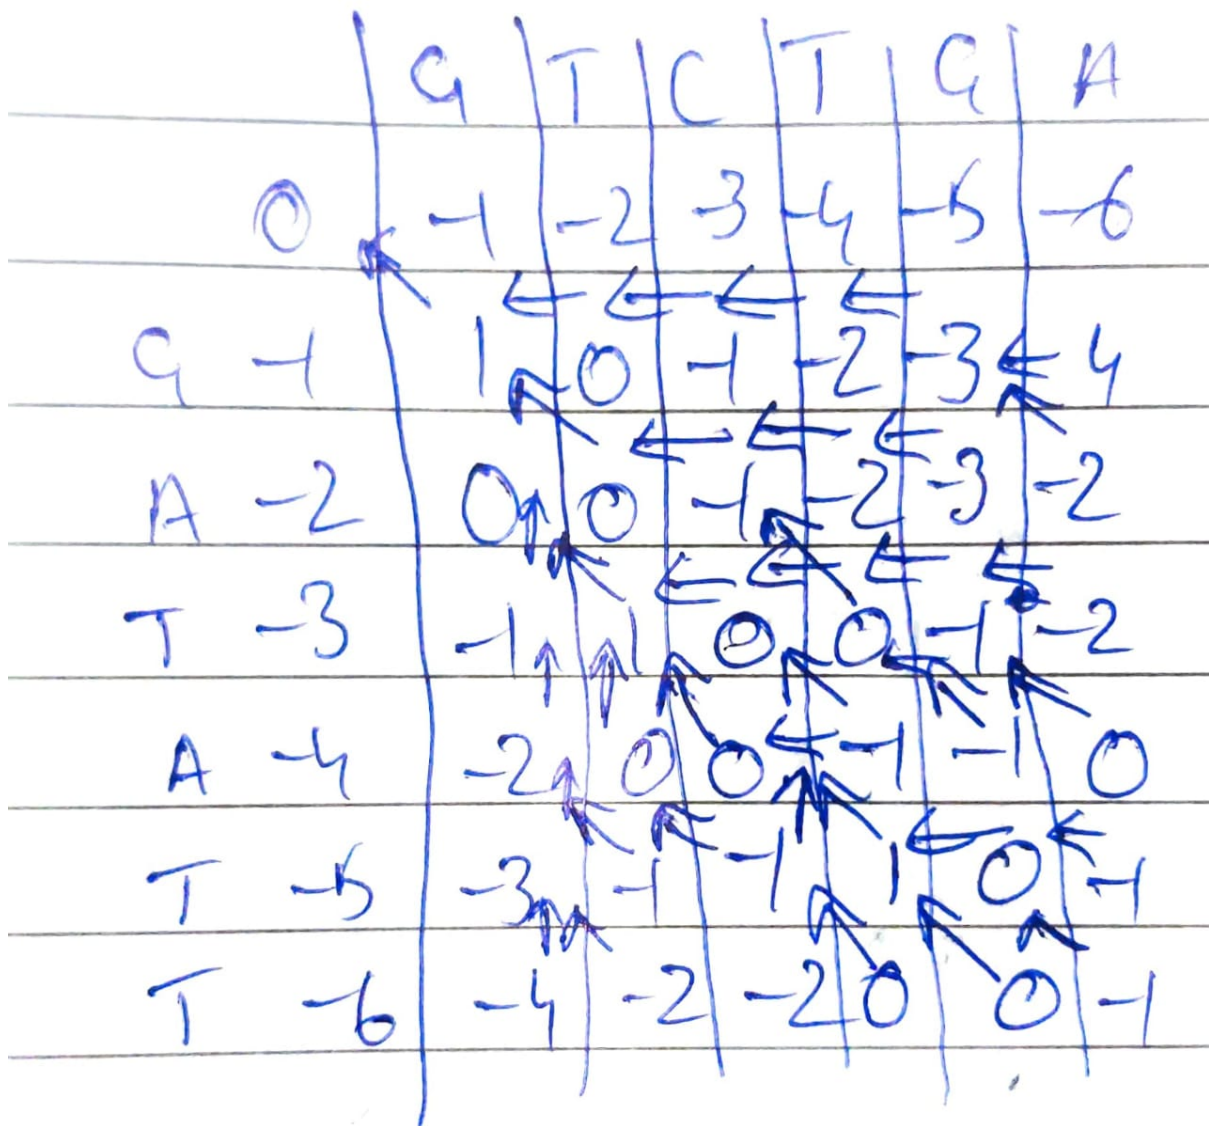 G T C T G A
0 -1 -2 -3 -4 -5 -6
G -1 1 0 -1 -2 -3 4
A -2 0 0 -1 -2 -3 -2
T -3 -1 1 0 0 -1 -2
A -4 -2 0 0 -1 -1 0
T -5 -3 -1 -1 1 0 -1
T -6 -4 -2 -2 0 0 -1